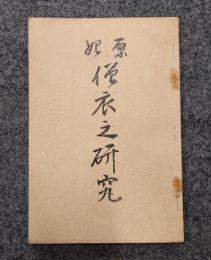 原始
僧衣之研究